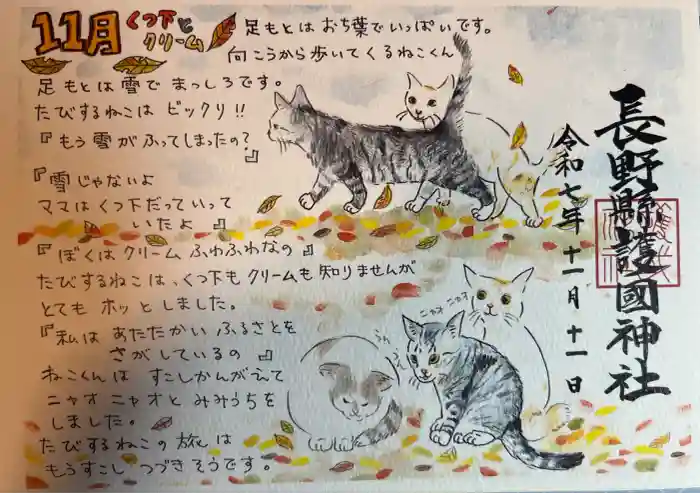 11月
くつ下と
クリーム
足もとはおち葉でいっぱいです。
向こうから歩いてくるねこくん
足もとは雪で まっしろです。
たびするねこは ビックリ!!
『もう雪がふってしまったの?』
『雪じゃないよ
ママはくつ下だっていって
いたよ』
『ぼくは クリーム ふわふわなの』
たびするねこは、くつ下も クリームも 知りませんが
とても ホッと しました。
『私は あたたかい ふるさとを
さがしているの 』
ねこくんは すこしかんがえて
ニャオ ニャオと みみうちを
しました。
たびするねこの旅は
もうすこし つづきそうです。
ニャオ ニャオ
長野縣護國神社
令和七年 十一月 十一日